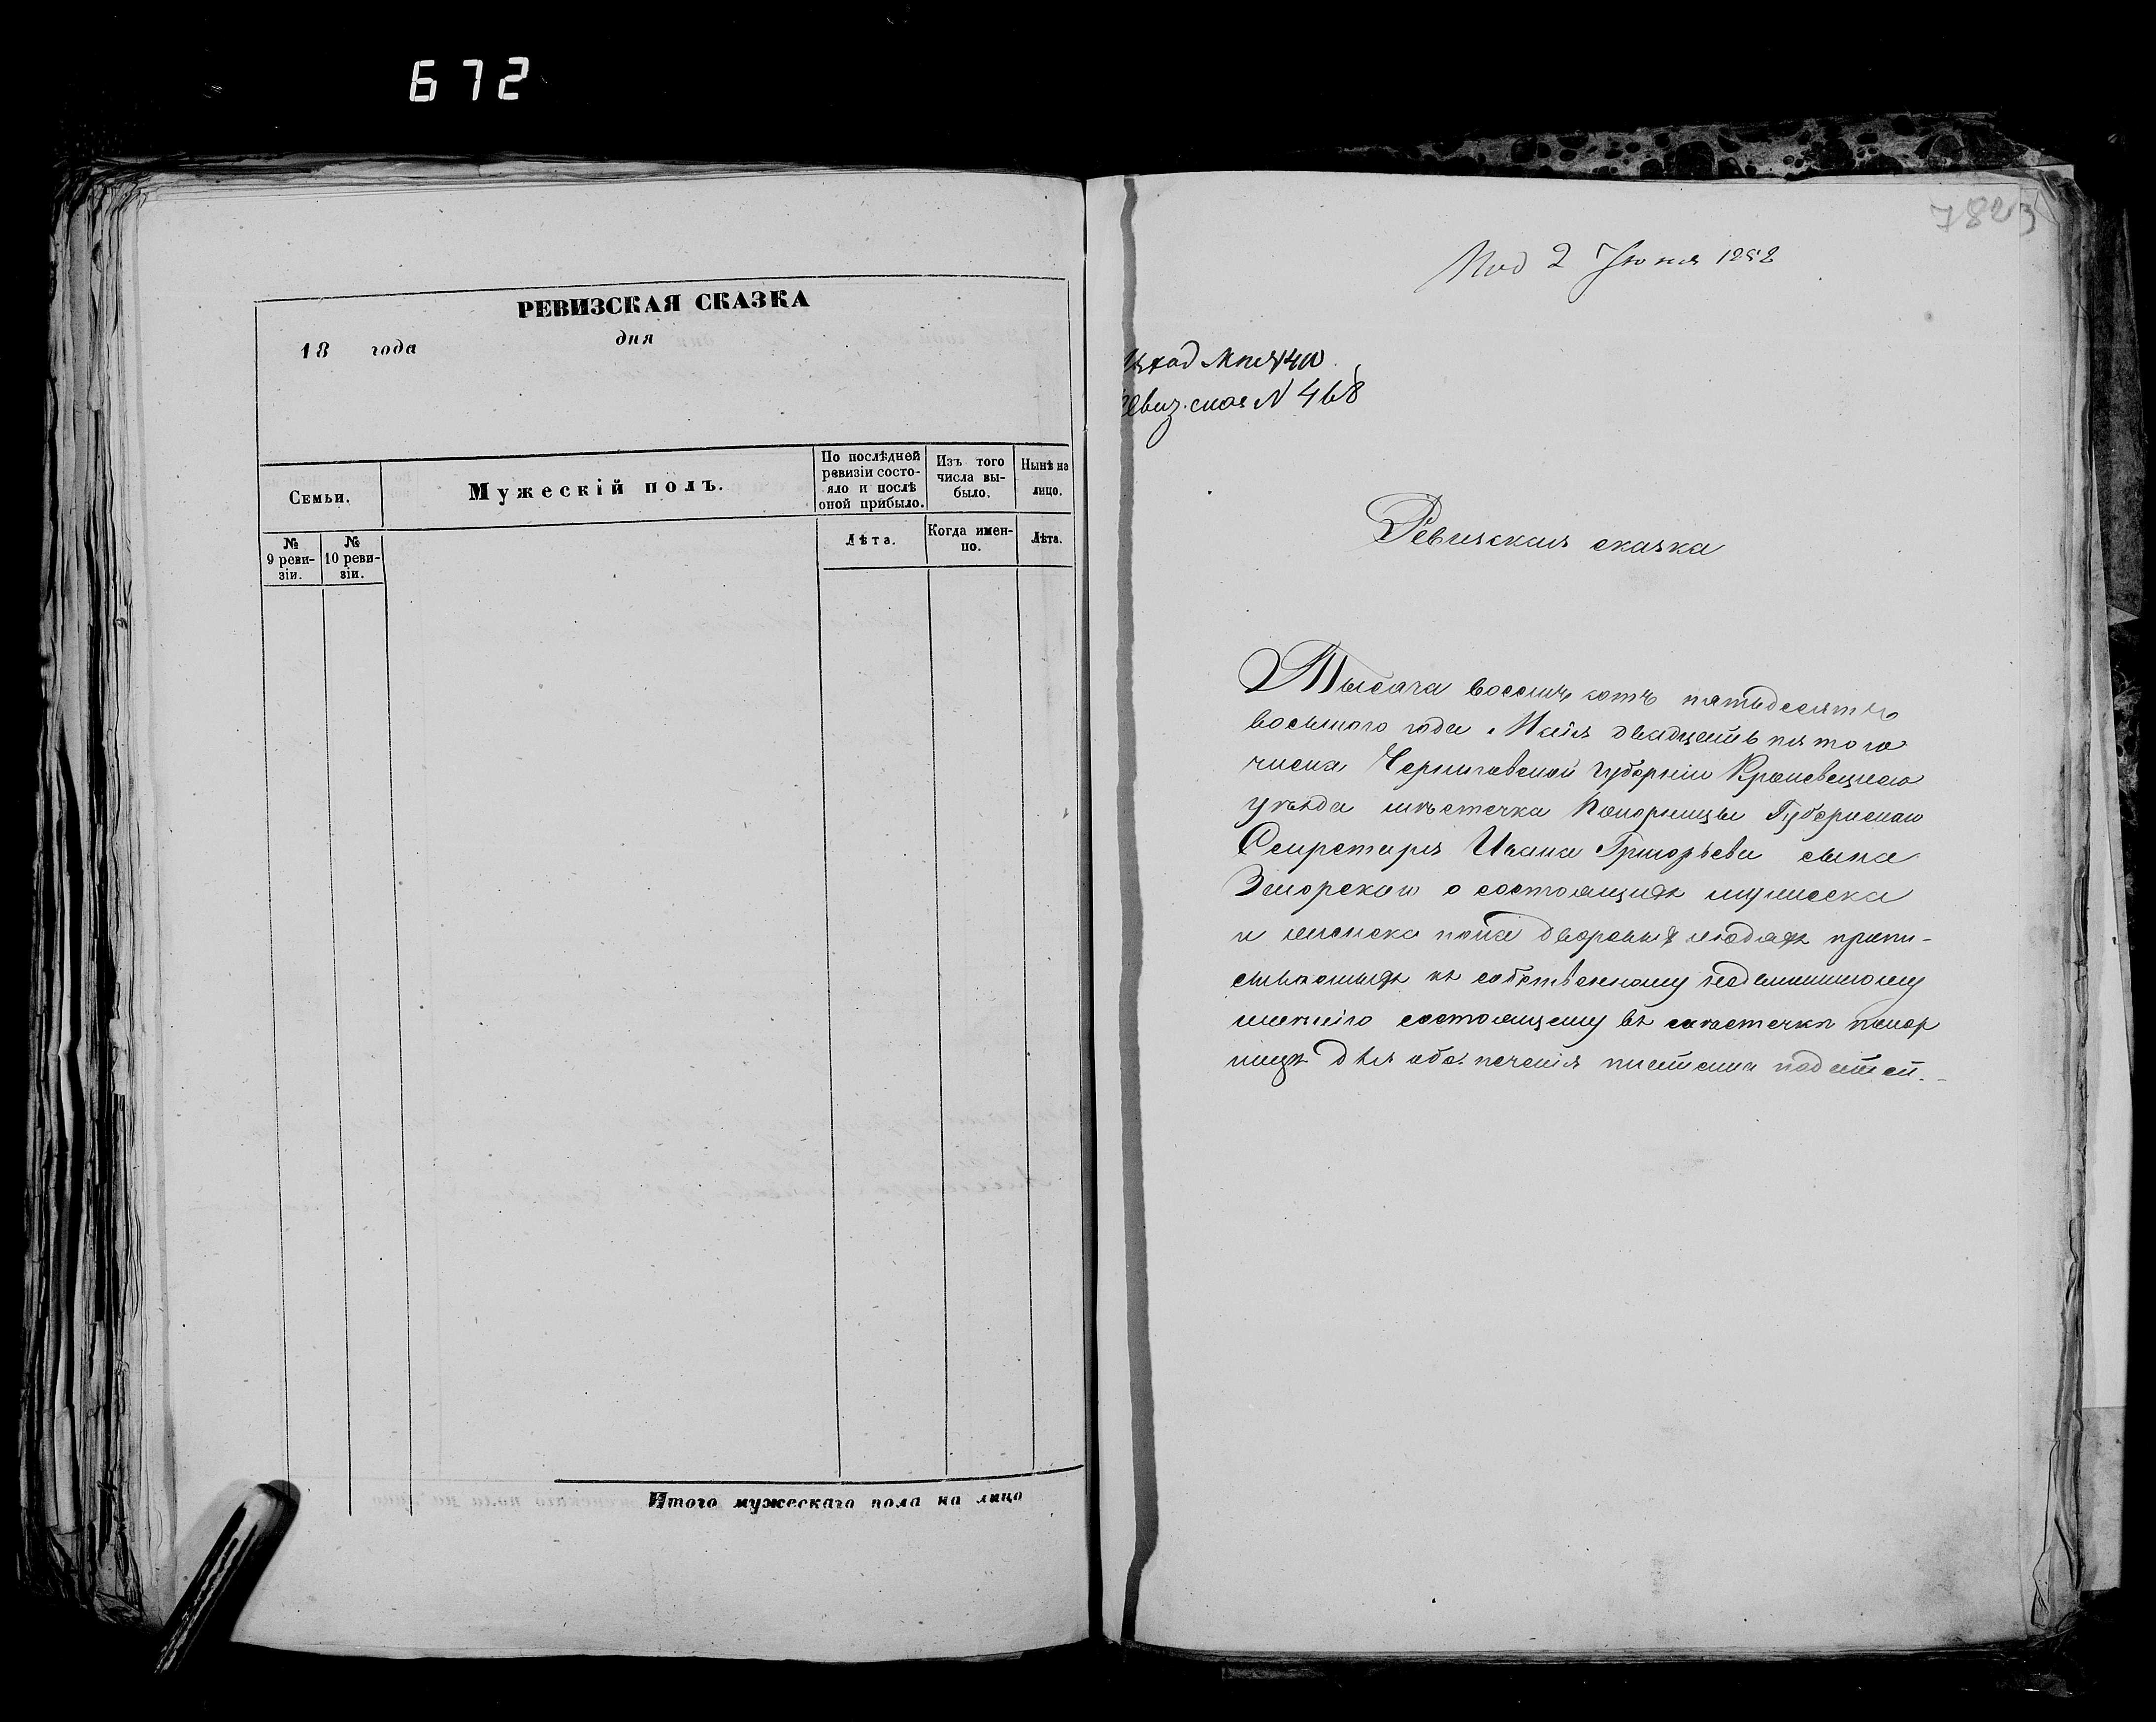 672
РЕВИЗСКАЯ СКАЗКА
18 года дня
Семьи.
Мужескій полъ.
По послѣдней ревизіи состо-
яло и послѣ
оной прибыло.
Изъ того
числа вы-
было.
Нынѣ на
лицо.
№
9 реви-
зіи.
№
10 реви-
зіи.
Лѣта.
Когда имен-
но.
Лѣта.
Итого мужескаго пола на лицо
2 Июня 1858
№ 468
Ревизская сказка
Тысяча восемь сотъ пятьдесятъ
восьмого года Маія двадцать пятого
числа Черниговской губерніи Кролевецкаго
уѣзда мѣстечка Понорницы Губернскаго
Секретаря Ивана Григорьева сына
о состоящихъ мужеска
и женска пола дворовыхъ людяхъ припи-
къ собственному недвижимому
имѣнію состоящему въ мѣстечкѣ Понор
ницѣ для обезпеченія платежа податей.